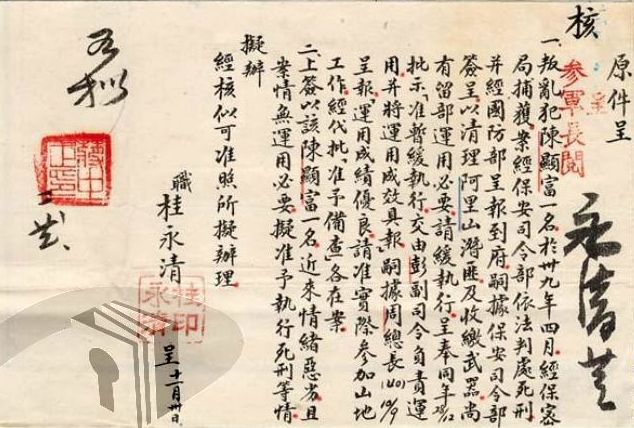 原件呈
核
呈
參軍長閱
永清 廿
一、叛亂犯陳顯富一名於卅九年四月經保密
局捕獲案經保安司令部依法判處死刑
并經國防部呈報到府嗣據保安司令部
簽呈以清理阿里山潛匪及收繳武器尚
有留部運用必要請緩執行呈奉同年
批示「准暫緩執行交由彭副司令負責運
用并將運用成效具報」嗣據周總長(40)10/9
呈報「運用成績優良請准實際參加山地
工作經代批「准予備查」各在案
二、上簽以該陳顯富一名近來情緒惡劣且
案情無運用必要擬准予執行死刑等情
擬辦
經核似可准照所擬辦理
職 桂永清
桂永清印
呈 十一月卅日